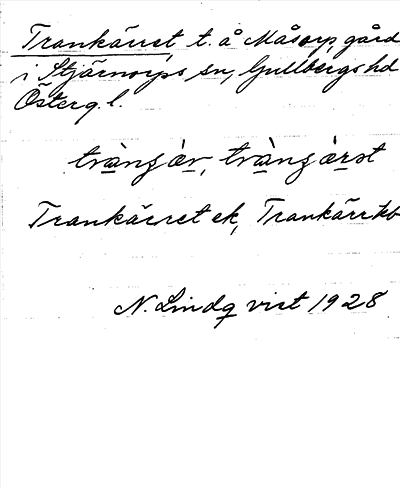 Trankärret t. å Måsorp, gård
i Stjärnorps sn, Gullbergs hd
Österg. l.
tràngǽr, tràngǽrət
Trankärret ek, Trankärr kb
N. Lindqvist 1928